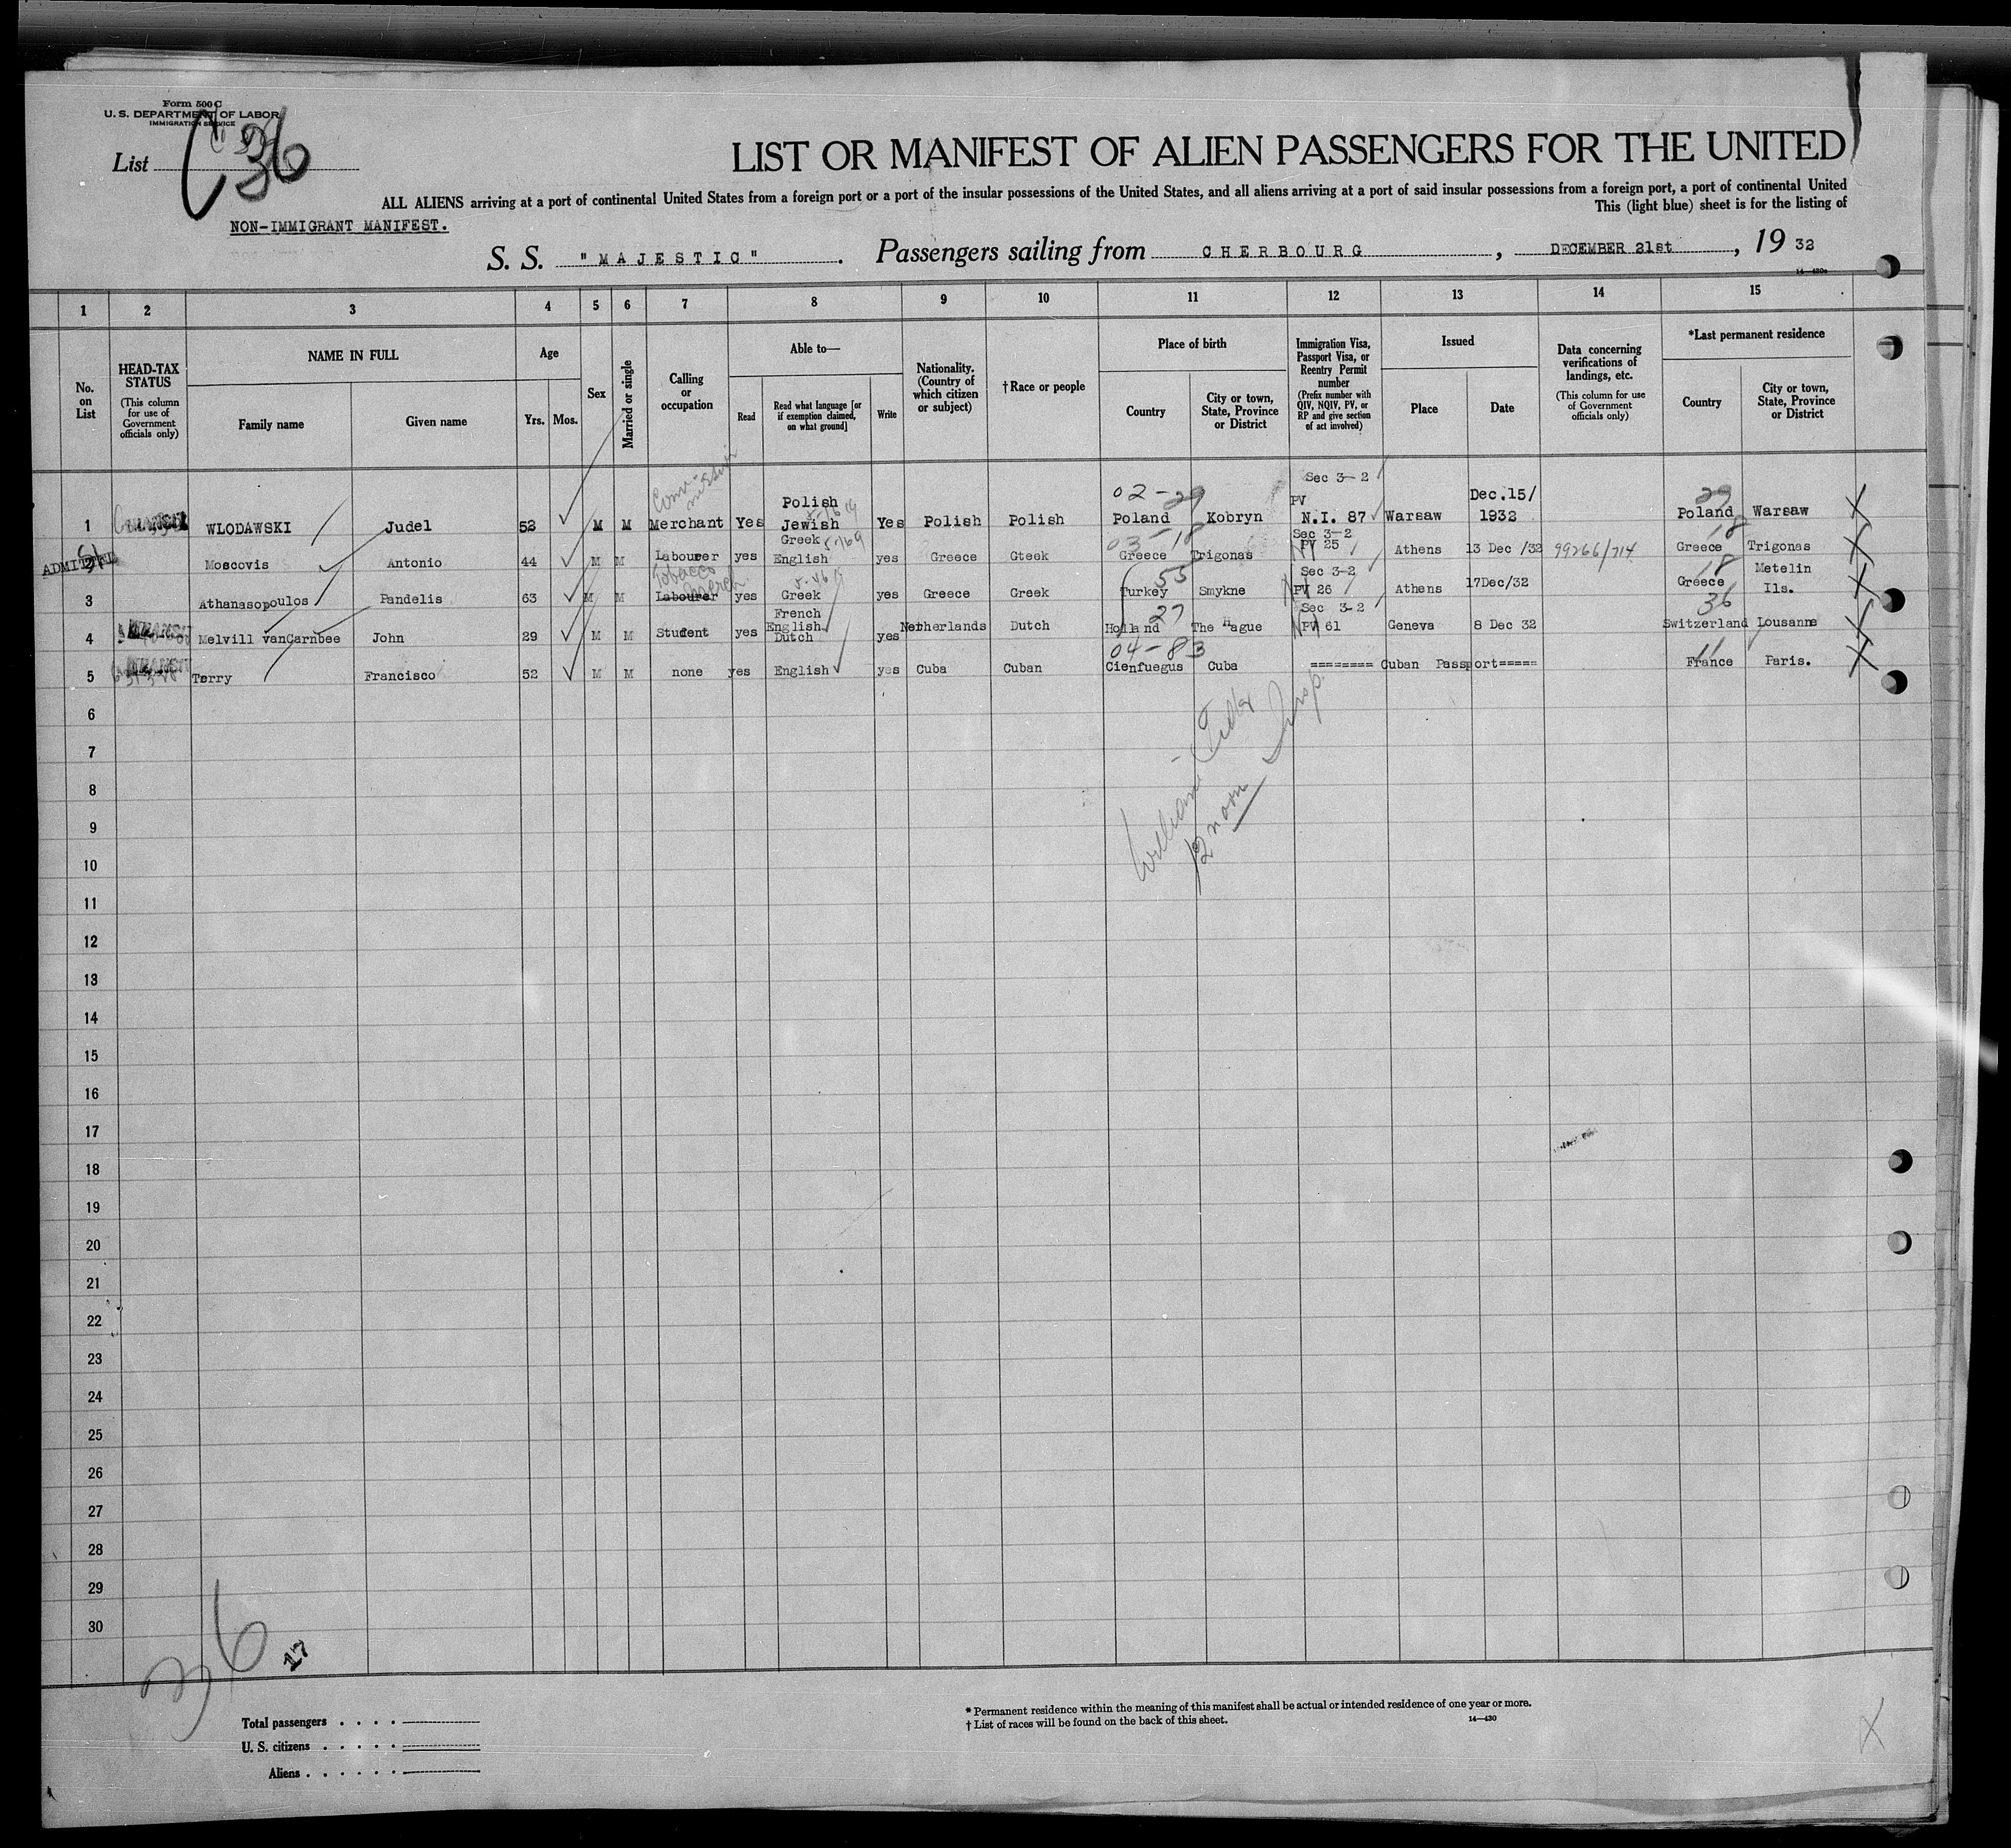 Form 500 C
U. S. DEPARTMENT OF LABOR
IMMIGRATION SERVICE
List C 36
LIST OR MANIFEST OF ALIEN PASSENGERS FOR THE UNITED
ALL ALIENS arriving at a port of continental United States from a foreign port or a port of the insular possessions of the United States, and all aliens arriving at a port of said insular possessions from a foreign port, a port of continental United
This (light blue) sheet is for the listing of
NON-IMMIGRANT MANIFEST.
S. S. "MAJESTIC". Passengers sailing from CHERBOURG, DECEMBER 21st, 19 32
14—430c
1 2 3 4 5 6 7 8 9 10 11 12 13 14 15
No. on List
HEAD-TAX STATUS (This column for use of Government officials only)
NAME IN FULL
Family name
Given name
Age
Yrs. Mos.
Sex
Married or single
Calling or occupation
Able to—
Read
Read what language [or if exemption claimed, on what ground]
Write
Nationality. (Country of which citizen or subject)
†Race or people
Place of birth
Country
City or town, State, Province or District
Immigration Visa, Passport Visa, or Reentry Permit number (Prefix number with QIV, NQIV, PV, or RP and give section of act involved)
Issued
Place
Date
Data concerning verifications of landings, etc. (This column for use of Government officials only)
*Last permanent residence
Country
City or town, State, Province or District
Sec 3-2
Polish 02-29 PV Dec.15/ 29
1 WLODAWSKI Judel 52 M M Merchant Yes Jewish Yes Polish Polish Poland Kobryn N.I. 87 Warsaw 1932 Poland Warsaw
Greek 03-18 Sec 3-2 18
ADMITTED Moscovis Antonio 44 M M Labourer yes English yes Greece Gteek Greece Trigonas PV 25 Athens 13 Dec /32 99266/714 Greece Trigonas
Tobacco Merch 55 Sec 3-2 18 Metelin
3 Athanasopoulos Pandelis 63 M M Labourer yes Greek yes Greece Greek Turkey Smykne PV 26 Athens 17Dec/32 Greece Ils.
French 27 Sec 3-2 36
English
4 Melvill vanCarnbee John 29 M M Student yes Dutch yes Netherlands Dutch Holland The Hague PV 61 Geneva 8 Dec 32 Switzerland Lousanne
04-83 11
5 Terry Francisco 52 M M none yes English yes Cuba Cuban Cienfuegus Cuba ======== Cuban Passport=====
France Paris.
6
7
William
12 noon
8
9
10
11
12
13
14
15
16
17
18
19
20
21
22
23
24
25
26
27
28
29
30
36 17
Total passengers
U. S. citizens
Aliens
* Permanent residence within the meaning of this manifest shall be actual or intended residence of one year or more.
† List of races will be found on the back of this sheet.
14—430